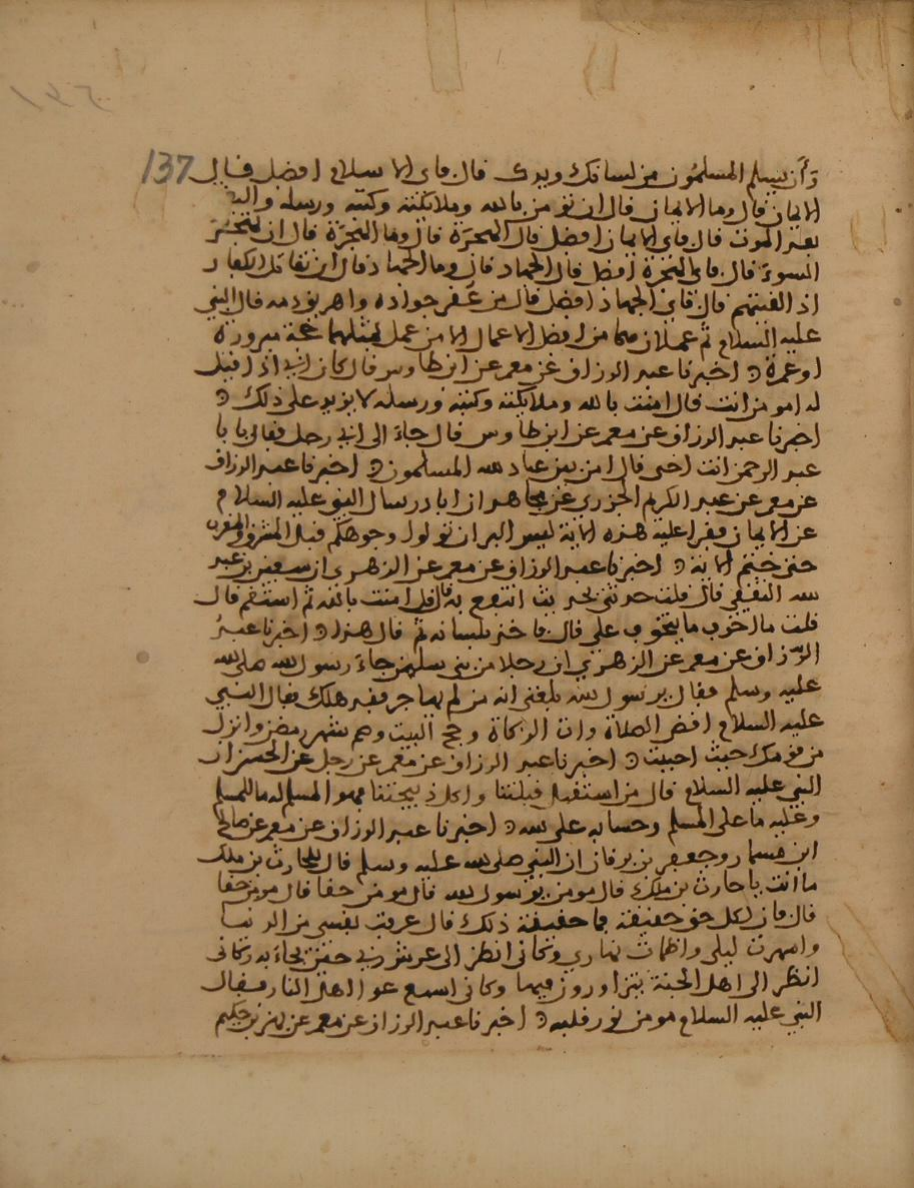 137
وأن يسلم المسلمون من لسانك ويدك قال فاي الاسلام افضل قال
الايمان قال وما الايمان قال ان تومن بالله وملايكته وكتبه ورسله والبعث
بعد الموت قال فاي الايمان افضل قال الهجرة قال وما الهجرة قال ان تهجر
السوء قال فاي الهجرة افضل قال الجهاد قال وما الجهاد قال ان تقاتل الكفار
اذا لقيتهم قال فاي الجهاد افضل قال من عقر جواده واهريق دمه قال النبي
عليه السلام ثم عملان هما من افضل الاعمال الا من عمل بمثلهما حجة مبرورة
او عمرة ه اخبرنا عبد الرزاق عن معمر عن ابن طاوس قال كان ابي اذا قيل
له امومن انت قال امنت بالله وملايكته وكتبه ورسله لا يزيد على ذلك ه
اخبرنا عبد الرزاق عن معمر عن ابن طاوس قال جاء الى ابي رجل فقال يا با
عبد الرحمن انت اخي قال امن بين عباد الله المسلمون ه اخبرنا عبد الرزاق
عن معمر عن عبد الكريم الجزري عن مجاهد ان ابا ذر سال النبي عليه السلام
عن الايمان فقرا عليه هذه الاية ليس البر ان تولوا وجوهكم قبل المشرق والمغرب
حتى ختم الاية ه اخبرنا عبد الرزاق عن معمر عن الزهري ان سفين بن عبد
الله الثقفي قال قلت حدثني بحديث انتفع به قال قل امنت بالله ثم استقم قال
قلت ما اخوف ما يتخوف علي قال فاخذ بلسانه ثم قال هذا ه اخبرنا عبد
الرزاق عن معمر عن الزهري ان رجلا من بني جاء رسول الله صلى الله
عليه وسلم فقال يرسول الله بلغني انه من لم يهاجر فقد هلك فقال النبي
عليه السلام اقم الصلاة وات الزكاة وحج البيت وصم شهر رمضن وانزل
من قومك حيث احببت ه اخبرنا عبد الرزاق عن معمر عن رجل عن الحسن ان
النبي عليه السلام قال من استقبل قبلتنا واكل ذبيحتنا فهو المسلم له ما للمسلم
وعليه ما على المسلم وحسابه على الله ه اخبرنا عبد الرزاق عن معمر عن صالح
ابن مسمار وجعفر بن برقان ان النبي صلى الله عليه وسلم قال للحارث بن ملك
ما انت يا حارث بن ملك قال مومن يرسول الله قال مومن حقا قال مومن حقا
قال فان لكل حق حقيقة فما حقيقة ذلك قال عزفت نفسي من الدنيا
واسهرت ليلي واظمات نهاري وكاني انظر الى عرش ربي حين يجاء به وكاني
انظر الى اهل الجنة يتزاورون فيها وكاني اسمع عوا اهل النار فقال
النبي عليه السلام مومن نور قلبه ه اخبرنا عبد الرزاق عن معمر عن بهز بن حكيم